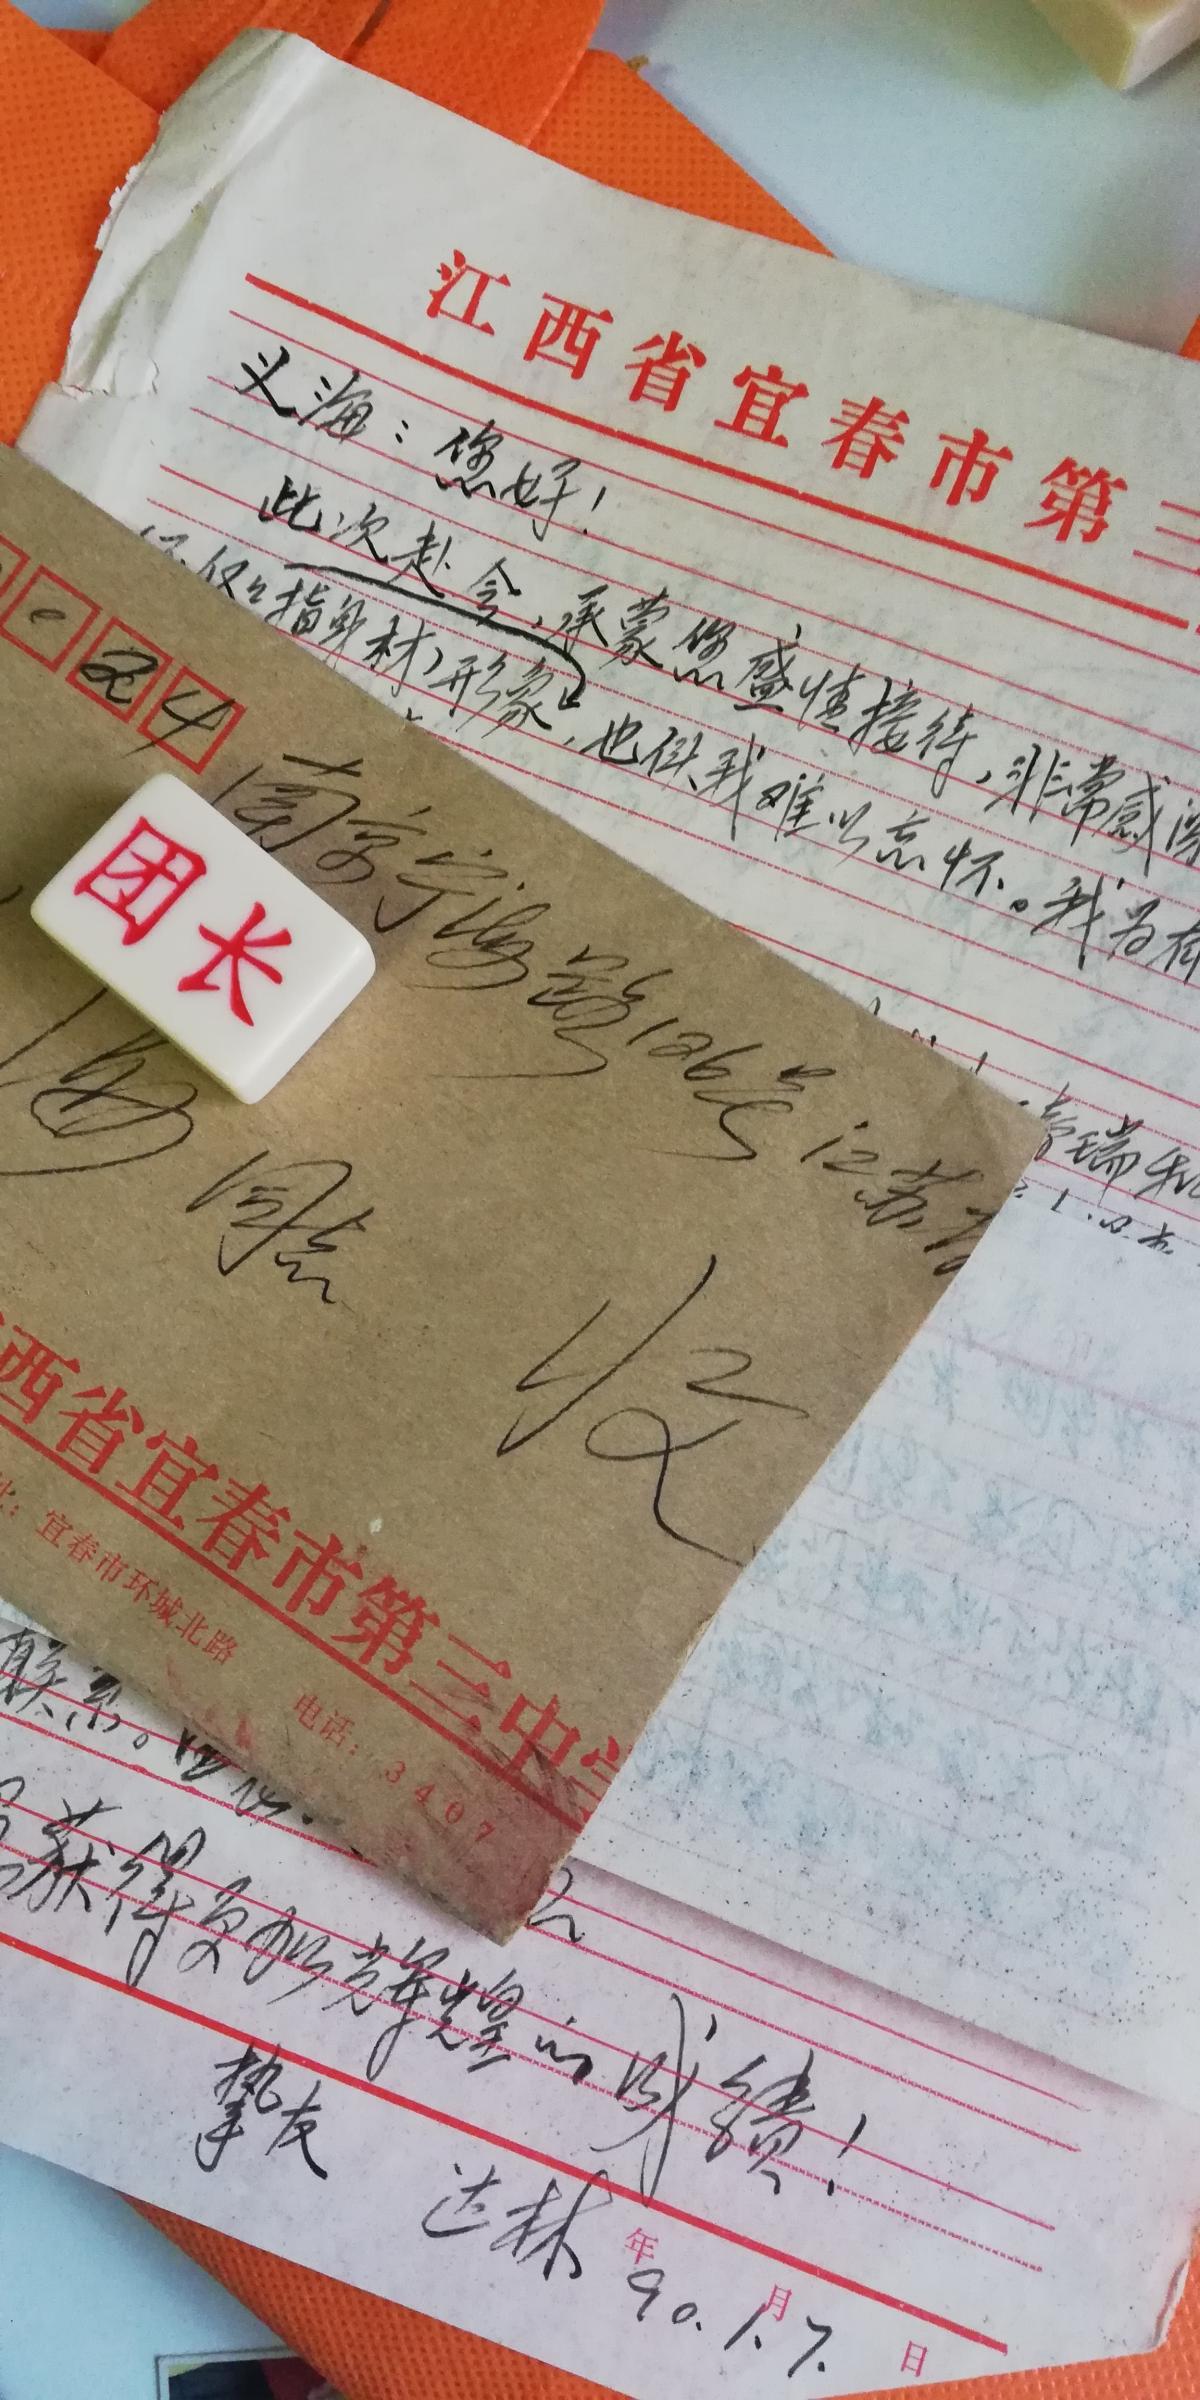 江西省宜春市第三
义海：您好！
此次赴会，承蒙您盛情接待，非常感
仅仅指身材、形象，也使我难以忘怀。我为有
24
南京宁海路126号江苏
团长
海同志
收
西省宜春市第三中学
址：宜春市环城北路 电话：3407
联系。
获得更加辉煌的成绩！
挚友
达林
年 月 日
90.1.7.